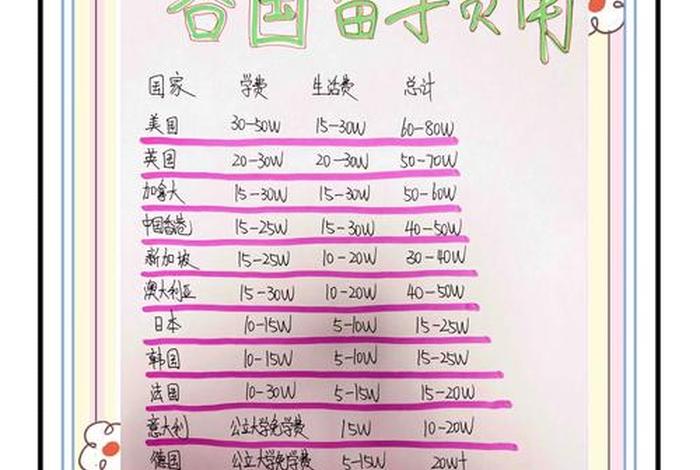 各国留学费用
国家 学费 生活费 总计
美国 30-50W 15-30W 60-80W
英国 20-30W 20-30W 50-70W
加拿大 15-30W 15-30W 50-60W
中国香港 15-25W 15-30W 40-50W
新加坡 15-25W 10-20W 30-40W
澳大利亚 15-30W 10-20W 40-50W
日本 10-15W 5-10W 15-25W
韩国 10-15W 5-10W 15-25W
法国 10-30W 5-15W 15-20W
意大利 公立大学免学费 15W 10-20W
德国 公立大学免学费 5-15W 20W+